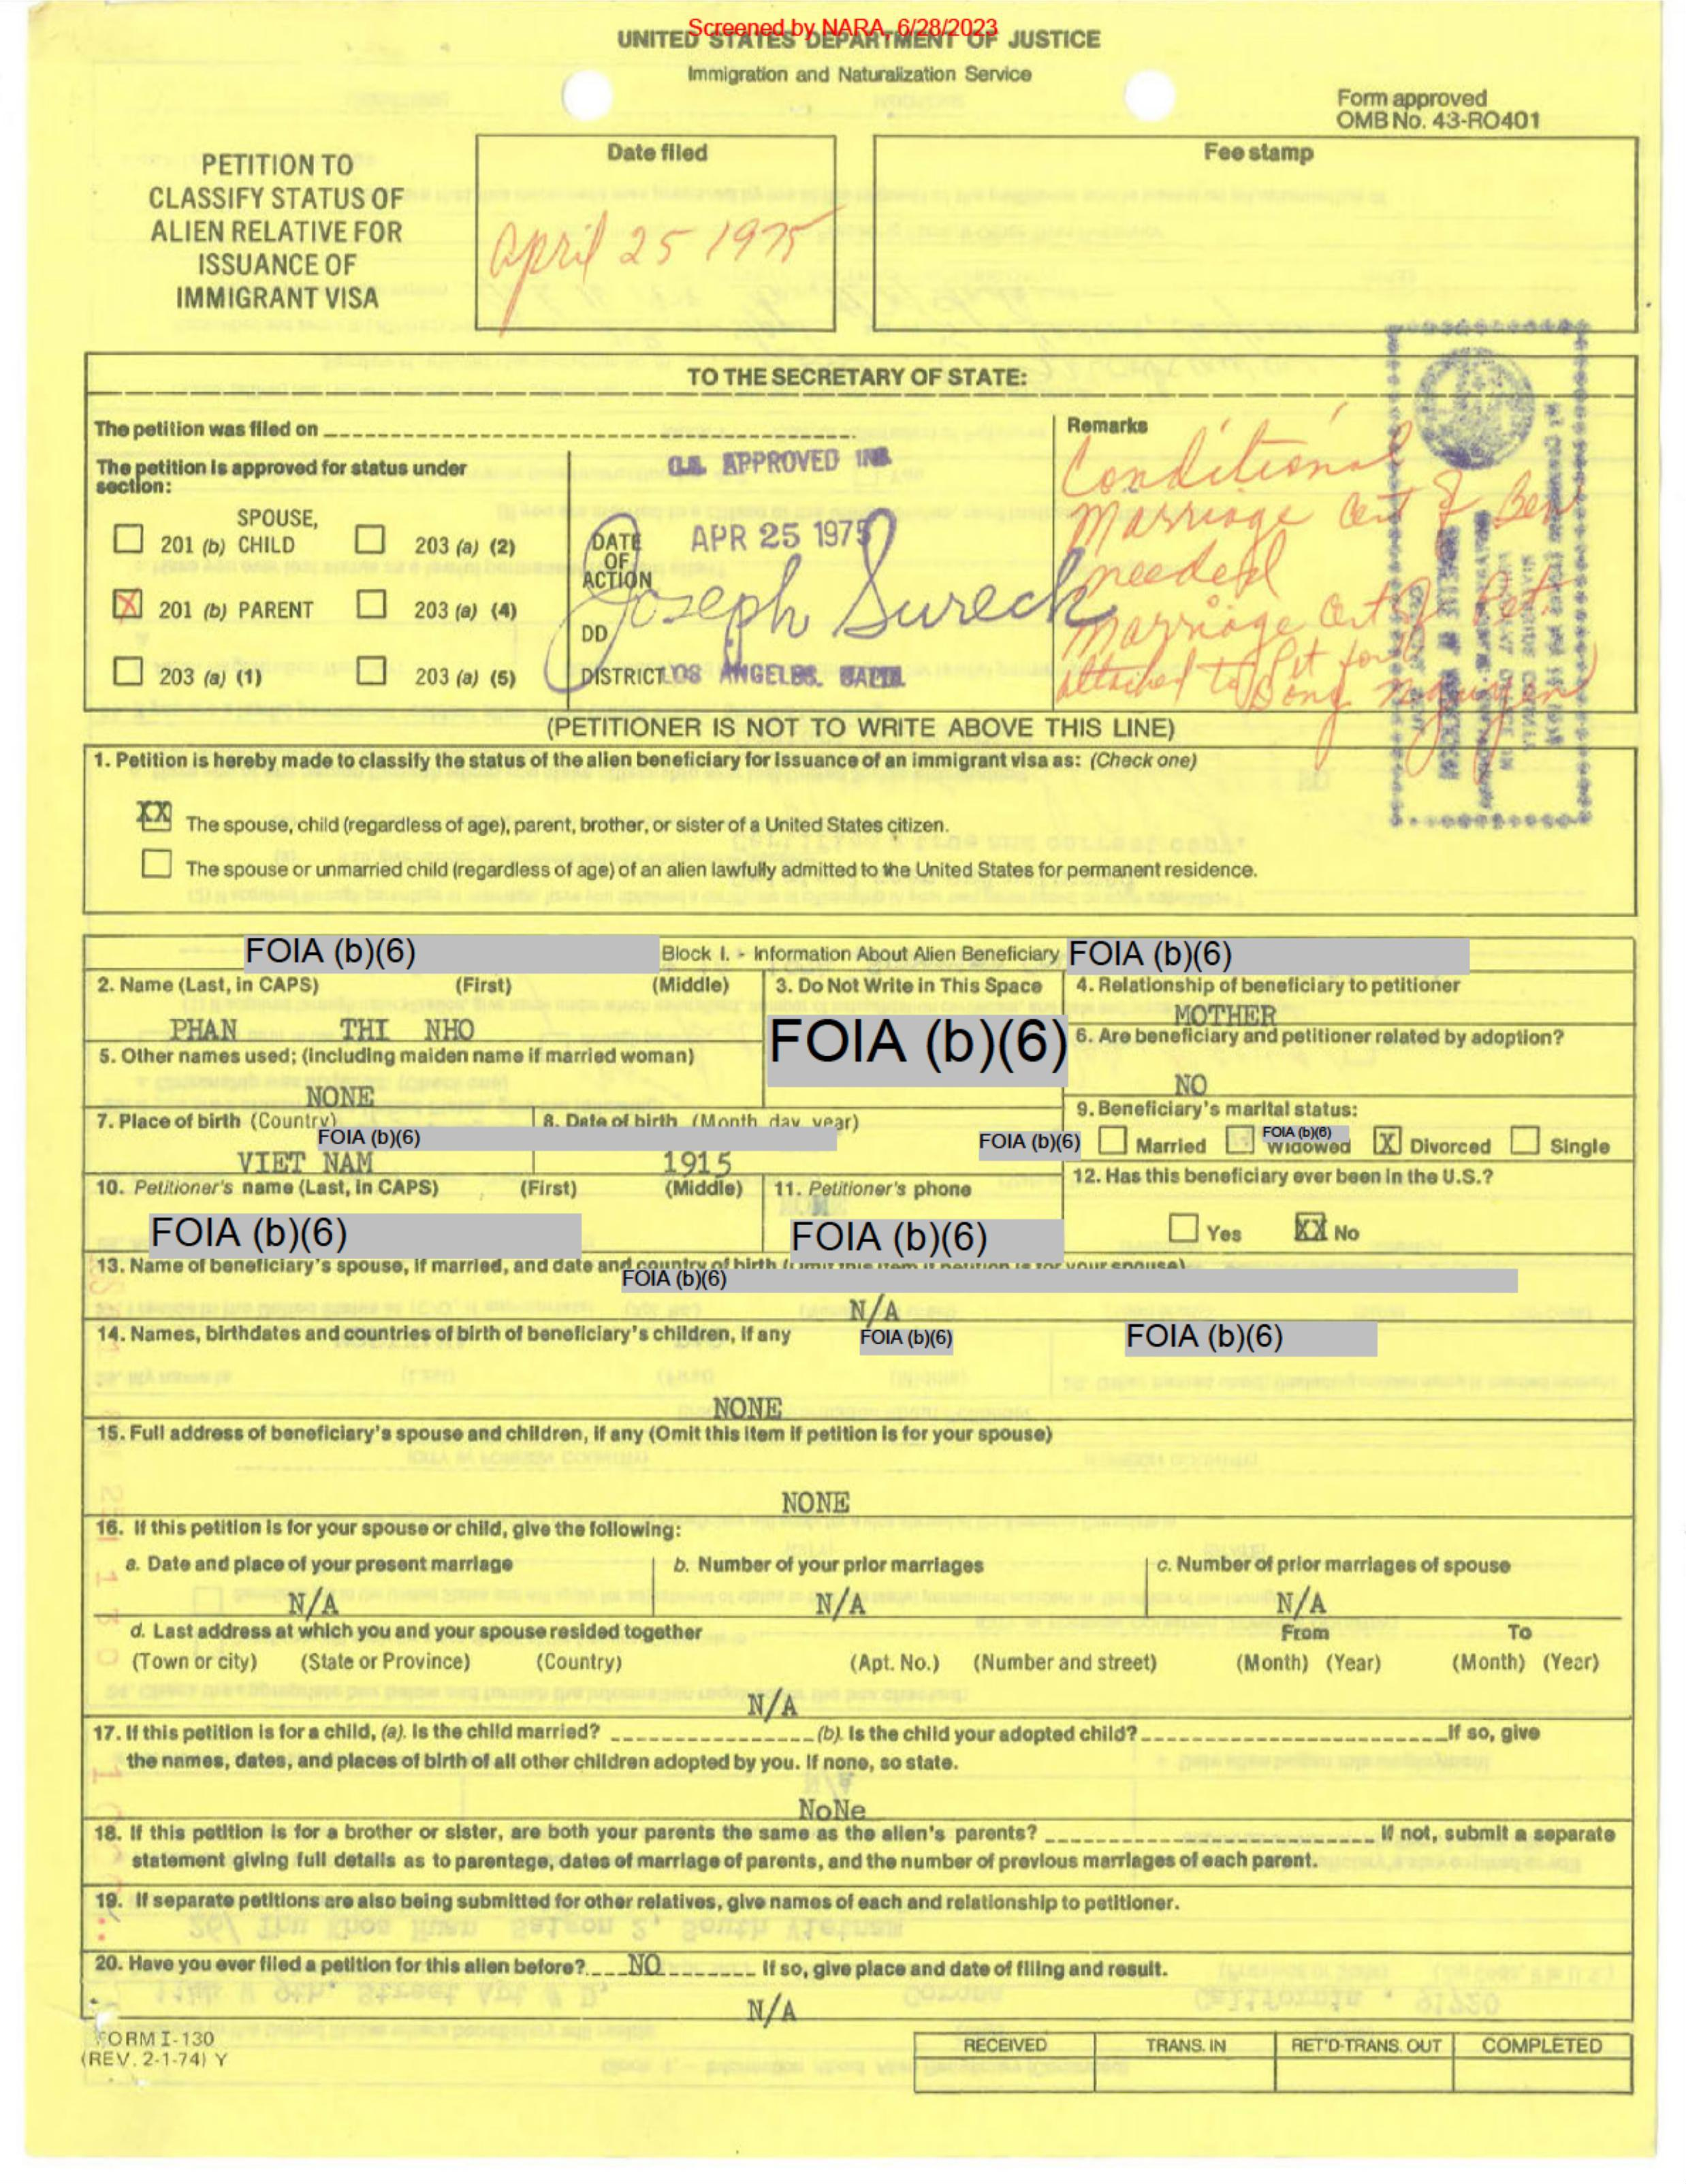 Screened by NARA, 6/28/2023
UNITED STATES DEPARTMENT OF JUSTICE
Immigration and Naturalization Service
Form approved
OMB No. 43-RO401
PETITION TO
CLASSIFY STATUS OF
ALIEN RELATIVE FOR
ISSUANCE OF
IMMIGRANT VISA
Date filed
April 25 1975
Fee stamp
TO THE SECRETARY OF STATE:
The petition was filed on
The petition is approved for status under
section:
SPOUSE,
201 (b) CHILD
203 (a) (2)
X 201 (b) PARENT
203 (a) (4)
203 (a) (1)
203 (a) (5)
APPROVED
DATE
OF
ACTION
APR 25 1975
Joseph Sureck
DD
DISTRICT LOS ANGELES, CALIF.
Remarks
Conditional
Marriage Cert of Ben
needed
Marriage Cert of Pet.
attached to Pet for
Bong Nguyen
(PETITIONER IS NOT TO WRITE ABOVE THIS LINE)
1. Petition is hereby made to classify the status of the alien beneficiary for issuance of an immigrant visa as: (Check one)
XX The spouse, child (regardless of age), parent, brother, or sister of a United States citizen.
The spouse or unmarried child (regardless of age) of an alien lawfully admitted to the United States for permanent residence.
FOIA (b)(6)
Block I. - Information About Alien Beneficiary
FOIA (b)(6)
2. Name (Last, in CAPS) (First) (Middle)
PHAN THI NHO
3. Do Not Write in This Space
FOIA (b)(6)
4. Relationship of beneficiary to petitioner
MOTHER
5. Other names used; (including maiden name if married woman)
NONE
6. Are beneficiary and petitioner related by adoption?
NO
7. Place of birth (Country)
FOIA (b)(6)
VIET NAM
8. Date of birth (Month, day, year)
1915
FOIA (b)(6)
9. Beneficiary's marital status:
Married FOIA (b)(6) Widowed X Divorced Single
10. Petitioner's name (Last, in CAPS) (First) (Middle)
FOIA (b)(6)
11. Petitioner's phone
FOIA (b)(6)
12. Has this beneficiary ever been in the U.S.?
Yes XX No
13. Name of beneficiary's spouse, if married, and date and country of birth (Omit this item if petition is for your spouse)
FOIA (b)(6)
N/A
14. Names, birthdates and countries of birth of beneficiary's children, if any
FOIA (b)(6)
FOIA (b)(6)
NONE
15. Full address of beneficiary's spouse and children, if any (Omit this item if petition is for your spouse)
NONE
16. If this petition is for your spouse or child, give the following:
a. Date and place of your present marriage
N/A
b. Number of your prior marriages
N/A
c. Number of prior marriages of spouse
N/A
d. Last address at which you and your spouse resided together From To
(Town or city) (State or Province) (Country) (Apt. No.) (Number and street) (Month) (Year) (Month) (Year)
N/A
17. If this petition is for a child, (a). Is the child married? (b). Is the child your adopted child? If so, give
the names, dates, and places of birth of all other children adopted by you. If none, so state.
NoNe
18. If this petition is for a brother or sister, are both your parents the same as the alien's parents? If not, submit a separate
statement giving full details as to parentage, dates of marriage of parents, and the number of previous marriages of each parent.
19. If separate petitions are also being submitted for other relatives, give names of each and relationship to petitioner.
20. Have you ever filed a petition for this alien before? NO If so, give place and date of filing and result.
N/A
FORM I-130
(REV. 2-1-74) Y
RECEIVED TRANS. IN RET'D-TRANS. OUT COMPLETED